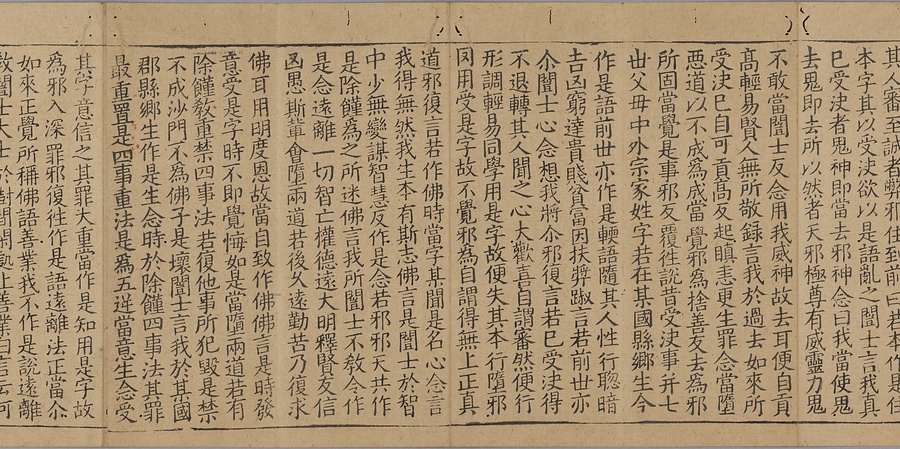 其人審至誠者弊邪住到前曰若本作是住
本字其以受決欲以是語亂之闓士言我真
已受決者鬼神即當去邪神念曰我當使鬼
去鬼即去所以然者天邪極尊有威靈力鬼
不敢當闓士反念用我威神故去耳便自貢
高輕易賢人無所敬録言我於過去如來所
受決已自可貢高反起瞋恚更生罪念當墮
惡道以不成為成當覺邪為捨善友去為邪
所固當覺是事邪友覆徃說昔受決事并七
世父母中外宗家姓字若在某國縣鄉生今
作是語前世亦作是輭語隨其人性行聦暗
吉凶窮達貴賤貧富因扶弊踧言若前世亦
尒闓士心念想我將尒邪復言若已受決得
不退轉其人聞之心大歡喜自謂審然便行
形調輕易同學用是字故便失其本行墮邪
罔用受是字故不覺邪為自謂得無上正真
道邪復言若作佛時當字某聞是名心念言
我得無然我生本有斯志佛言是闓士於智
中少無變謀智慧反作是念若邪邪天共作
是除饉為之所迷佛言我所闓士不教令作
是念遠離一切智亡權德遠大明釋賢友信
凶愚斯輩會墮兩道若後久遠勤苦乃復求
佛耳用明度恩故當自致作佛佛言是時發
意受是字時不即覺悔如是當墮兩道若有
除饉教重禁四事法若復他事所犯毀是禁
不成沙門不為佛子是壞闓士言我於某國
郡縣鄉生作是生念時於除饉四事法其罪
最重置是四事重法是為五逆當意生念受
其字意信之其罪大重當作是知用是字故
為邪入深罪邪復徃作是語遠離法正當尒
如來正覺所稱佛語善業我不作是說遠離
教闓士大士於